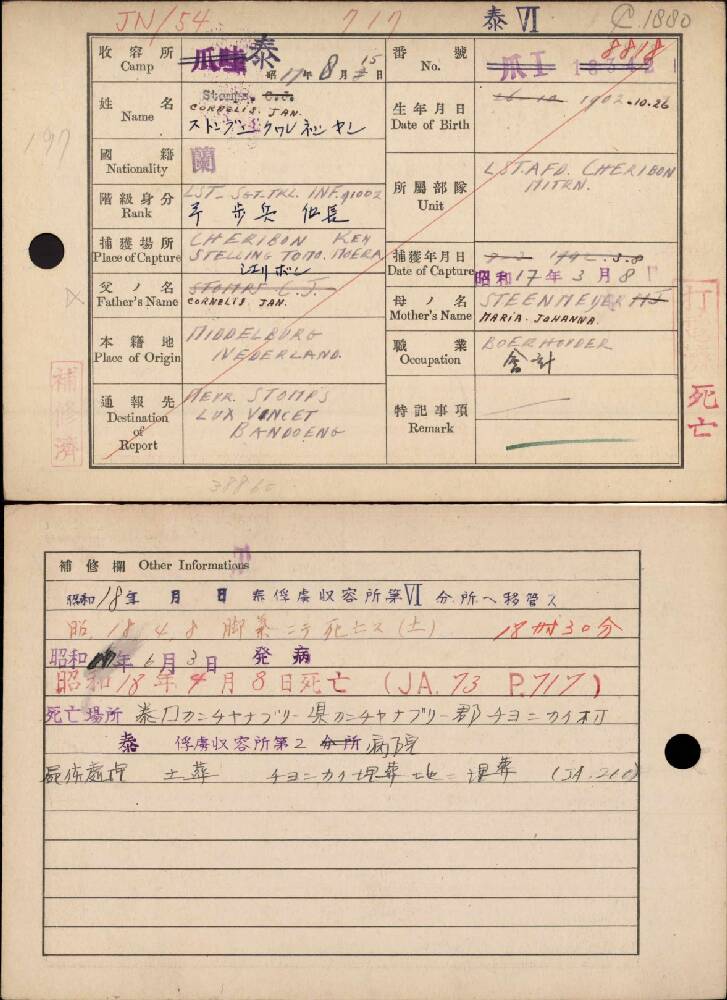 JN/54 717 泰 VI C.1880
收容所 Camp 爪哇 泰 昭 17 年 8 月 15 日
番號 No. 爪I 18342 8818
姓名 Name Stomps, C.J.
CORNELIS. JAN.
生年月日 Date of Birth 26-10 1902.10.26
國籍 Nationality 蘭
197
所屬部隊 Unit LST.AFD. CHERIBON
MITRN.
階級身分 Rank LST_ SGT.TKL. INF.
歩兵
捕獲場所 Place of Capture CHERIBON
STELLING TOMO. MOERA
捕獲年月日 Date of Capture
昭和 17 年 3 月 8 日
父ノ名 Father's Name STOMPS C.J.
CORNELIS. JAN.
母ノ名 Mother's Name STEENMEYER MJ
MARIA. JOHANNA.
本籍地 Place of Origin MIDDELBURG
NEDERLAND.
職業 Occupation BOEKHOUDER
会計
通報先 Destination of Report MEVR. STOMPS
LUX VINCET
BANDOENG
特記事項 Remark
補修済
死亡
補修欄 Other Informations
昭和 18 年 月 日 泰俘虜収容所第 VI 分所ヘ移管ス
昭. 18. 4. 8 脚気ニテ死亡ス (土) 18時30分
昭和 年 6 月 3 日 発病
昭和 18 年 4 月 8 日死亡 (JA. 73 P.717)
死亡場所 泰国カンチャナブリー県カンチャナブリー郡チョンカイ村
泰 俘虜収容所第2 分所 病院
屍体處理 土葬 チョンカイ埋葬地ニ埋葬